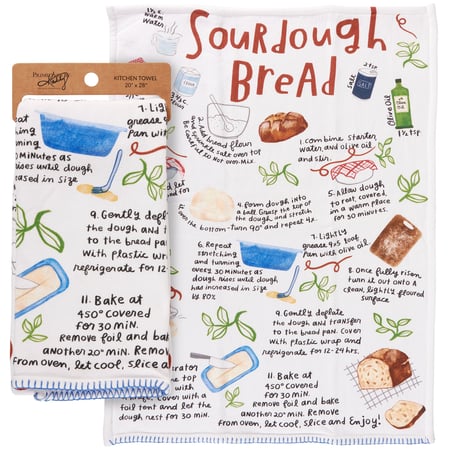 PRIMITIVES
by Kathy
KITCHEN TOWEL
20" x 28"
7. Lightly
grease 9x5
pan with o
30 minutes as
needed until dough
increased in size
9. Gently deflate
the dough and tr
to the bread pan.
with plastic wrap
refrigerate for 12-
11. Bake at
450° covered
for 30 min.
Remove foil and bak
another 20° min. Remove
from oven, let cool, slice a
Sourdough
Bread
warm
water
2 tsp
SALT
Olive Oil
1½ tsp
2. Add bread flour
and sprinkle salt over top.
Be careful to not over-mix.
1. Combine starter,
water, and olive oil,
and stir.
4. Form dough into
a ball. Grasp the top of
the dough, and stretch
it over the bottom-turn 90° and repeat 4x.
5. Allow dough
to rest, covered
in a warm place
for 30 minutes.
6. Repeat
stretching
and turning
every 30 minutes as
needed until dough
has increased in size
by 80%
7. Lightly
grease 9x5 loaf
pan with olive oil
8. Once fully risen,
turn it out onto a
clean, lightly floured
surface
9. Gently deflate
the dough and transfer
to the bread pan. Cover
with plastic wrap and
refrigerate for 12-24 hrs.
erator
the top
with
cover with a
foil tent and let the
dough rest for 30 min.
11. Bake at
450° covered
for 30 min.
Remove foil and bake
another 20° min. Remove
from oven, let cool, slice and Enjoy!